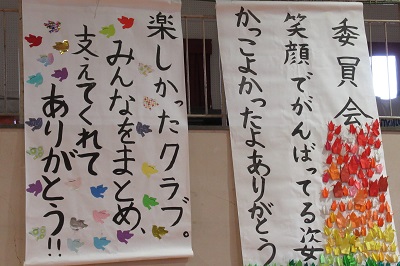 委員会
笑顔でがんばってる姿
かっこよかったよありがとう
楽しかったクラブ。
みんなをまとめ、
支えてくれて
ありがとう!!